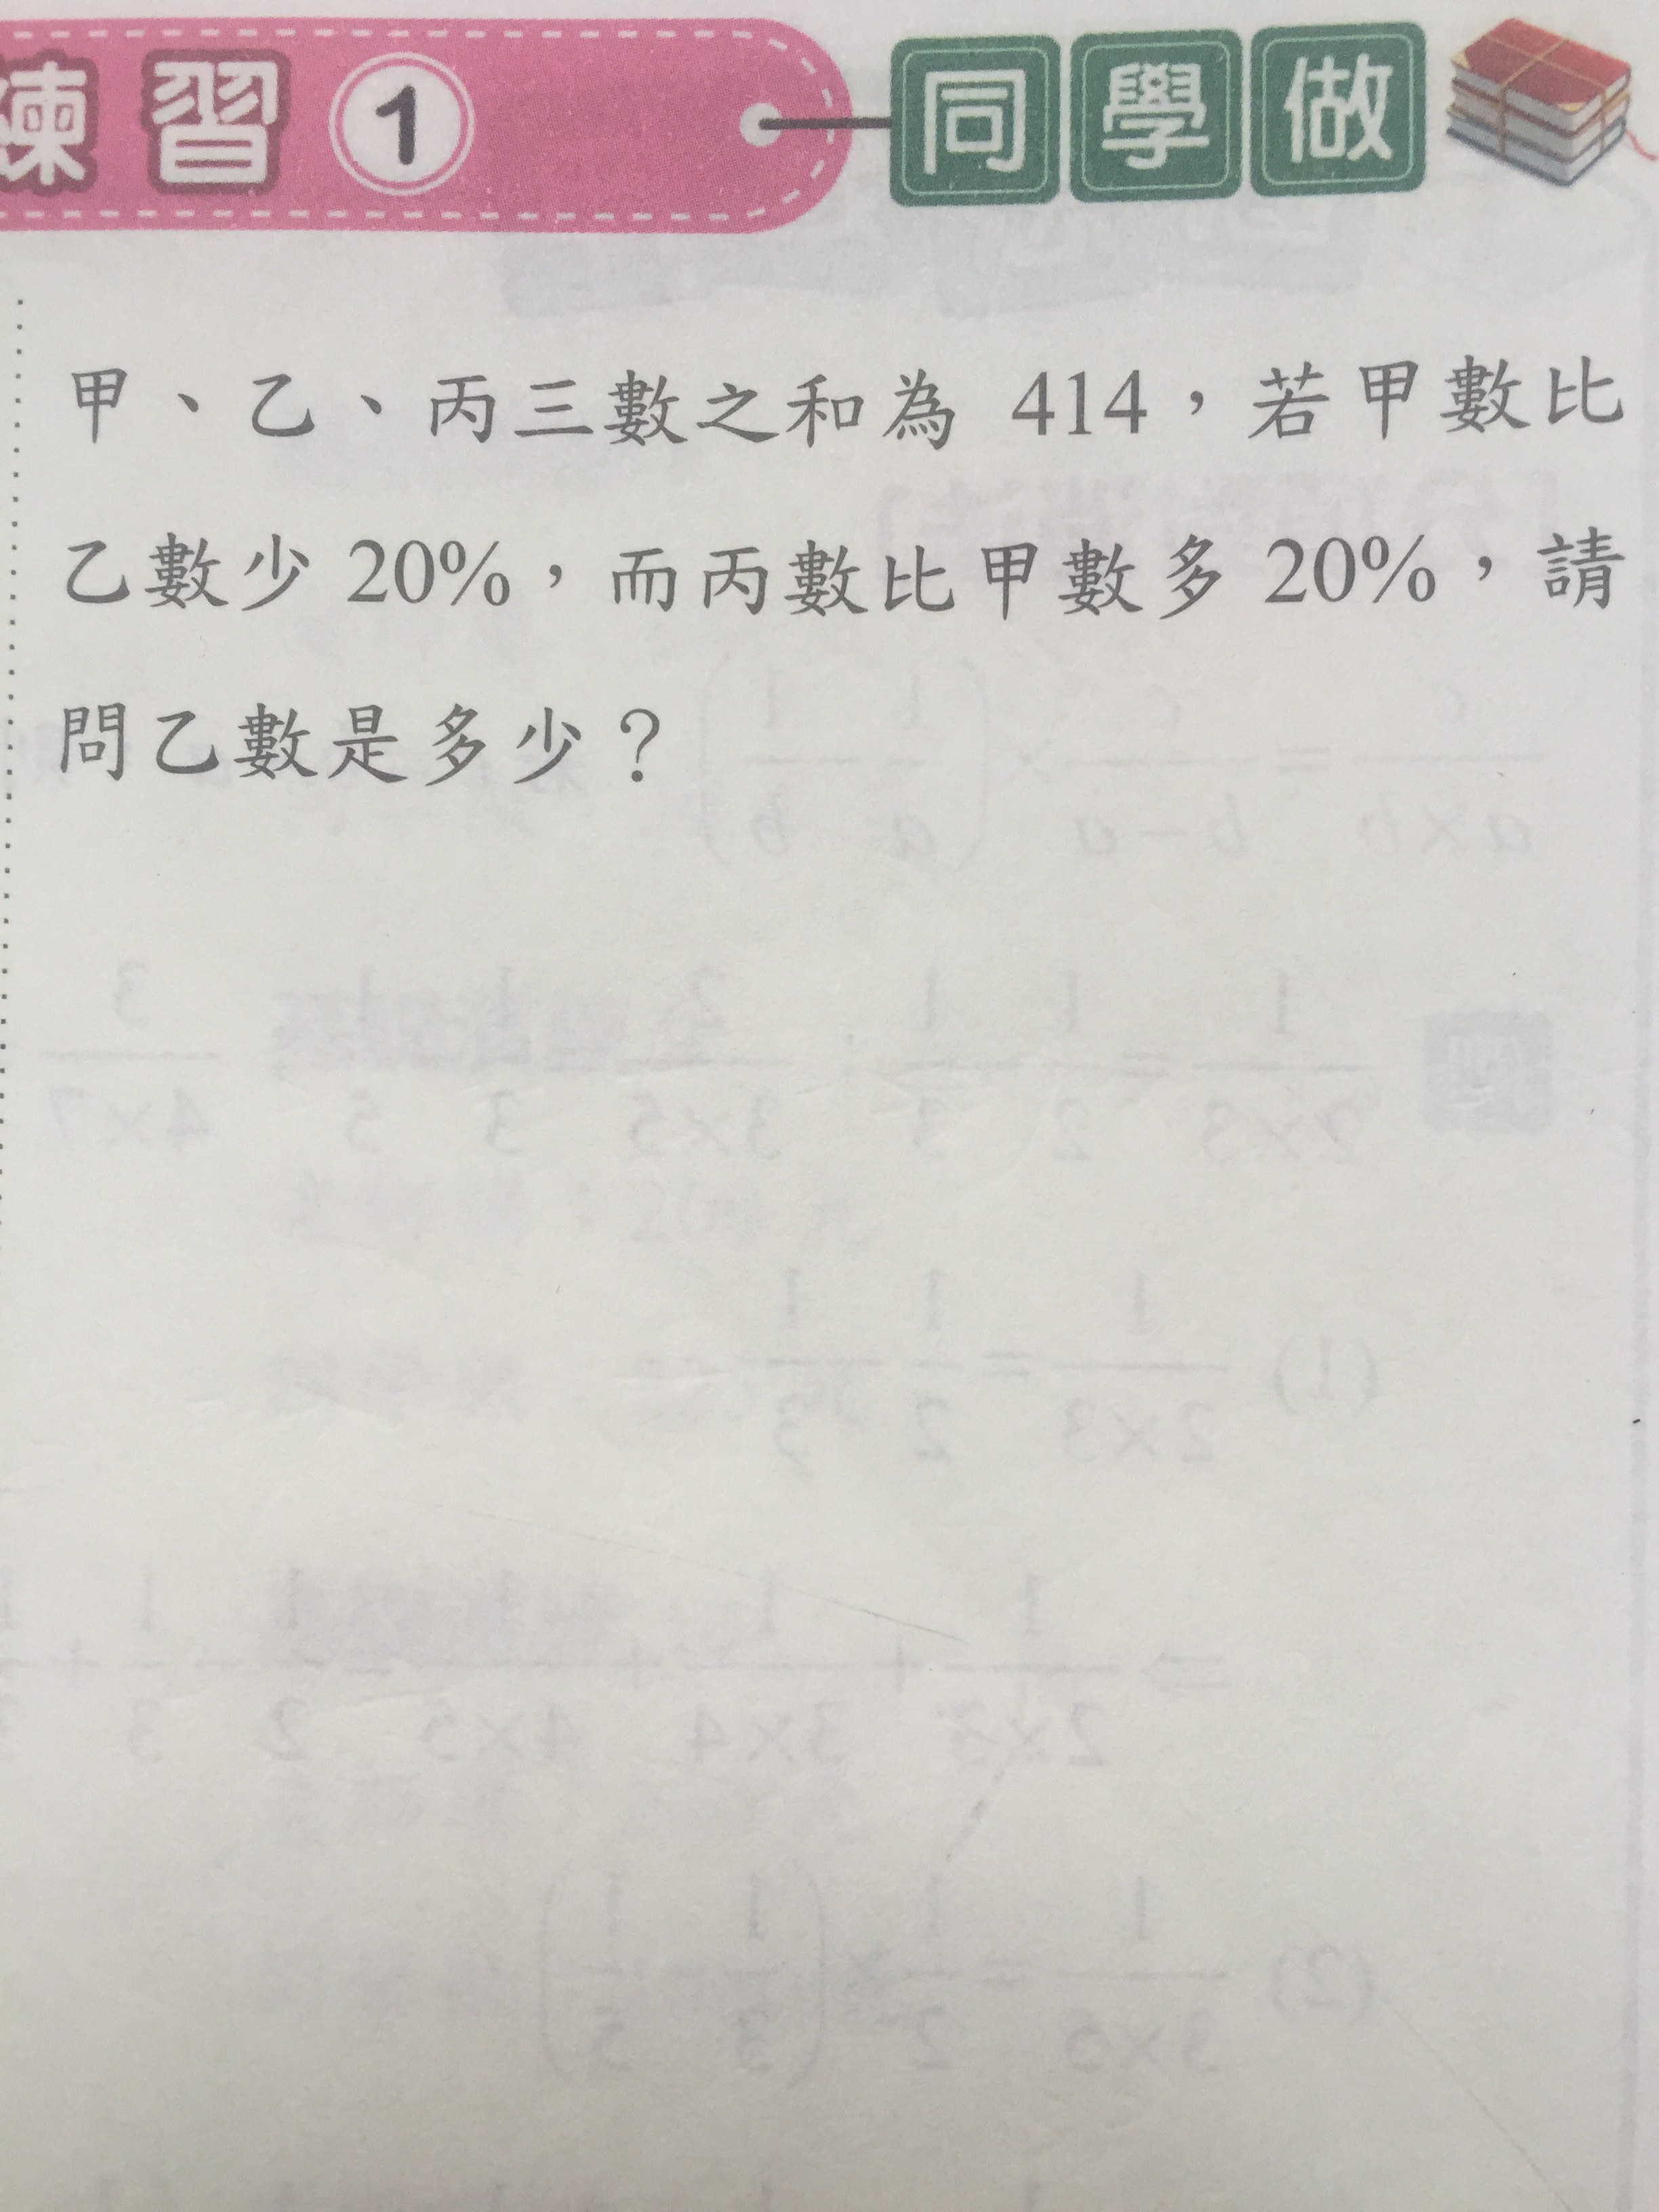 練習 1 同學做
甲、乙、丙三數之和為 414，若甲數比
乙數少 20%，而丙數比甲數多 20%，請
問乙數是多少？